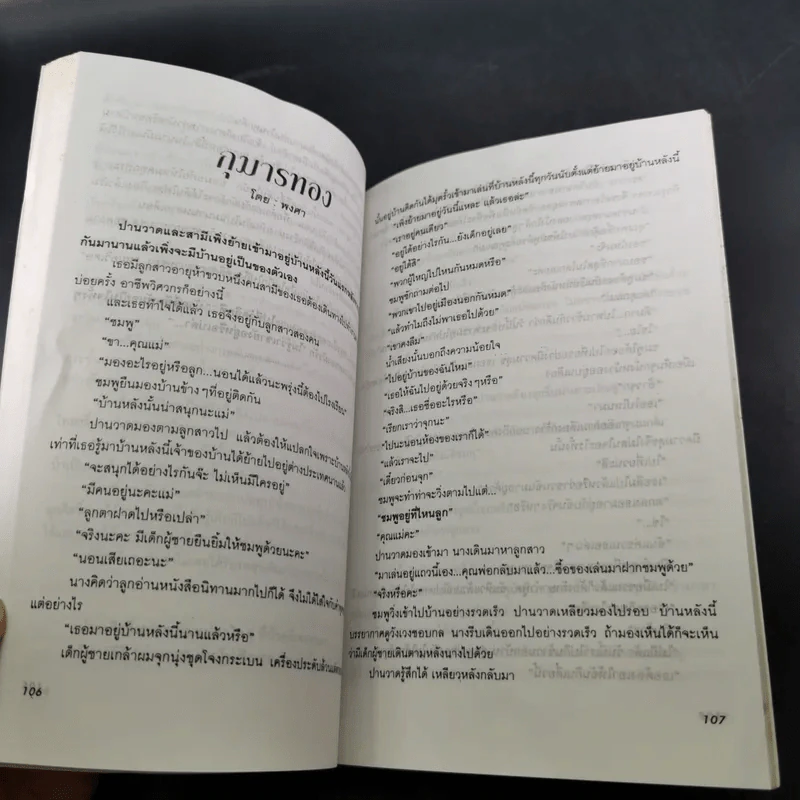 กุมารทอง
โดย : พงศา
ปานวาดและสามีเพิ่งย้ายเข้ามาอยู่บ้านหลังนี้วันแรก
กันมานานแล้วเพิ่งจะมีบ้านอยู่เป็นของตัวเอง
เธอมีลูกสาวอายุห้าขวบหนึ่งคนสามีของเธอต้องเดินทางไป
บ่อยครั้ง อาชีพวิศวกรก็อย่างนี้
และเธอทำใจได้แล้ว เธอจึงอยู่กับลูกสาวสองคน
“ชมพู”
“ขา...คุณแม่”
“มองอะไรอยู่หรือลูก...นอนได้แล้วนะพรุ่งนี้ต้องไปโรงเรียน”
ชมพูยืนมองบ้านข้าง ๆที่อยู่ติดกัน
“บ้านหลังนั้นน่าสนุกนะแม่”
ปานวาดมองตามลูกสาวไป แล้วต้องให้แปลกใจเพราะบ้าน
เท่าที่เธอรู้มาบ้านหลังนี้เจ้าของบ้านได้ย้ายไปอยู่ต่างประเทศนานแล้ว
“จะสนุกได้อย่างไรกันจ๊ะ ไม่เห็นมีใครอยู่”
“มีคนอยู่นะคะแม่”
“ลูกตาฝาดไปหรือเปล่า”
“จริงนะคะ มีเด็กผู้ชายยืนยิ้มให้ชมพูด้วยนะคะ”
“นอนเสียเถอะนะ”
นางคิดว่าลูกอ่านหนังสือนิทานมากไปก็ได้ จึงไม่ได้ใส่ใจกับคำพูด
แต่อย่างไร
“เธอมาอยู่บ้านหลังนี้นานแล้วหรือ”
เด็กผู้ชายเกล้าผมจุกนุ่งชุดโจงกระเบน เครื่องประดับล้วน
106
นั้นอยู่บ้านติดกันได้มุดรั้วเข้ามาเล่นที่บ้านหลังนี้ทุกวันนับตั้งแต่ย้ายมาอยู่บ้านหลังนี้
“เพิ่งย้ายมาอยู่วันนี้แหละ แล้วเธอล่ะ”
“เราอยู่คนเดียว”
“อยู่ได้อย่างไรกัน...ยังเด็กอยู่เลย”
“อยู่ได้สิ”
“พวกผู้ใหญ่ไปไหนกันหมดหรือ”
ชมพูซักถามต่อไป
“พวกเขาไปอยู่เมืองนอกกันหมด”
“แล้วทำไมถึงไม่พาเธอไปด้วย”
“เขาคงลืม”
น้ำเสียงนั้นบอกถึงความน้อยใจ
“ไปอยู่บ้านของฉันไหม”
“เธอให้ฉันไปอยู่ด้วยจริง ๆหรือ”
“จริงสิ...เธอชื่ออะไรหรือ”
“เรียกเราว่าจุกนะ”
“ไปนะนอนห้องของเราก็ได้”
“แล้วเราจะไป”
“เดี๋ยวก่อนจุก”
ชมพูจะทำท่าจะวิ่งตามไปแต่...
“ชมพูอยู่ที่ไหนลูก”
“คุณแม่คะ”
ปานวาดมองเข้ามา นางเดินมาหาลูกสาว
“มาเล่นอยู่แถวนี้เอง...คุณพ่อกลับมาแล้ว...ซื้อของเล่นมาฝากชมพูด้วย”
“จริงหรือคะ”
ชมพูวิ่งเข้าไปบ้านอย่างรวดเร็ว ปานวาดเหลียวมองไปรอบ บ้านหลังนี้
บรรยากาศดูวังเวงชอบกล นางรีบเดินออกไปอย่างรวดเร็ว ถ้ามองเห็นได้ก็จะเห็น
ว่ามีเด็กผู้ชายเดินตามหลังนางไปด้วย
ปานวาดรู้สึกได้ เหลียวหลังกลับมา
107